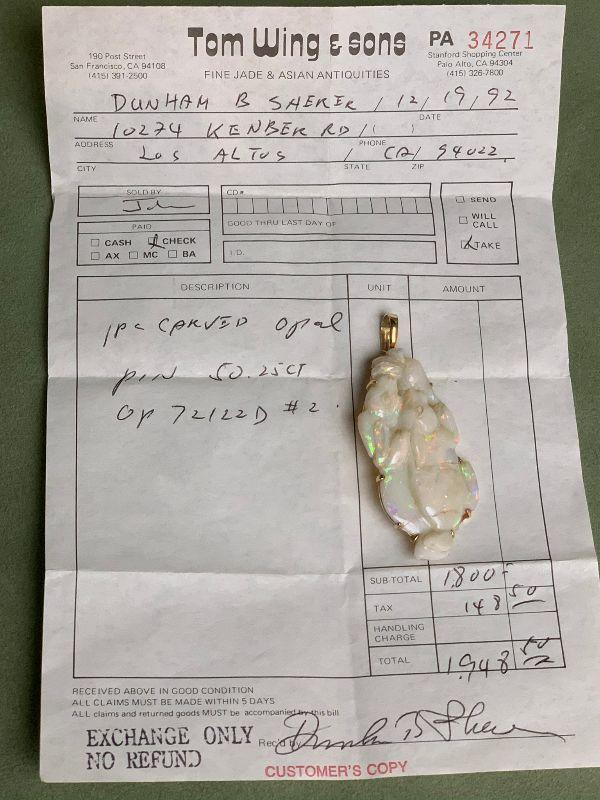 Tom Wing & sons
PA 34271
190 Post Street
San Francisco, CA 94108
(415) 391-2500
FINE JADE & ASIAN ANTIQUITIES
Stanford Shopping Center
Palo Alto, CA 94304
(415) 326-7800
DUNHAM B SHERER / 12/19/92
NAME DATE
10274 KENBER RD / ( )
ADDRESS PHONE
Los ALTUS / CA / 94022
CITY STATE ZIP
SOLD BY
PAID
☐ CASH ☑ CHECK
☐ AX ☐ MC ☐ BA
CD#
GOOD THRU LAST DAY OF
I.D.
☐ SEND
☐ WILL CALL
☑ TAKE
DESCRIPTION UNIT AMOUNT
1pc CARVED Opal
pin 50.25CT
Op 72122D #2.
SUB-TOTAL 1,800 -
TAX 148 50
HANDLING CHARGE
TOTAL 1,948 50
RECEIVED ABOVE IN GOOD CONDITION
ALL CLAIMS MUST BE MADE WITHIN 5 DAYS
ALL claims and returned goods MUST be accompanied by this bill
EXCHANGE ONLY
NO REFUND
Rec'd by Dunham B Sherer
CUSTOMER'S COPY